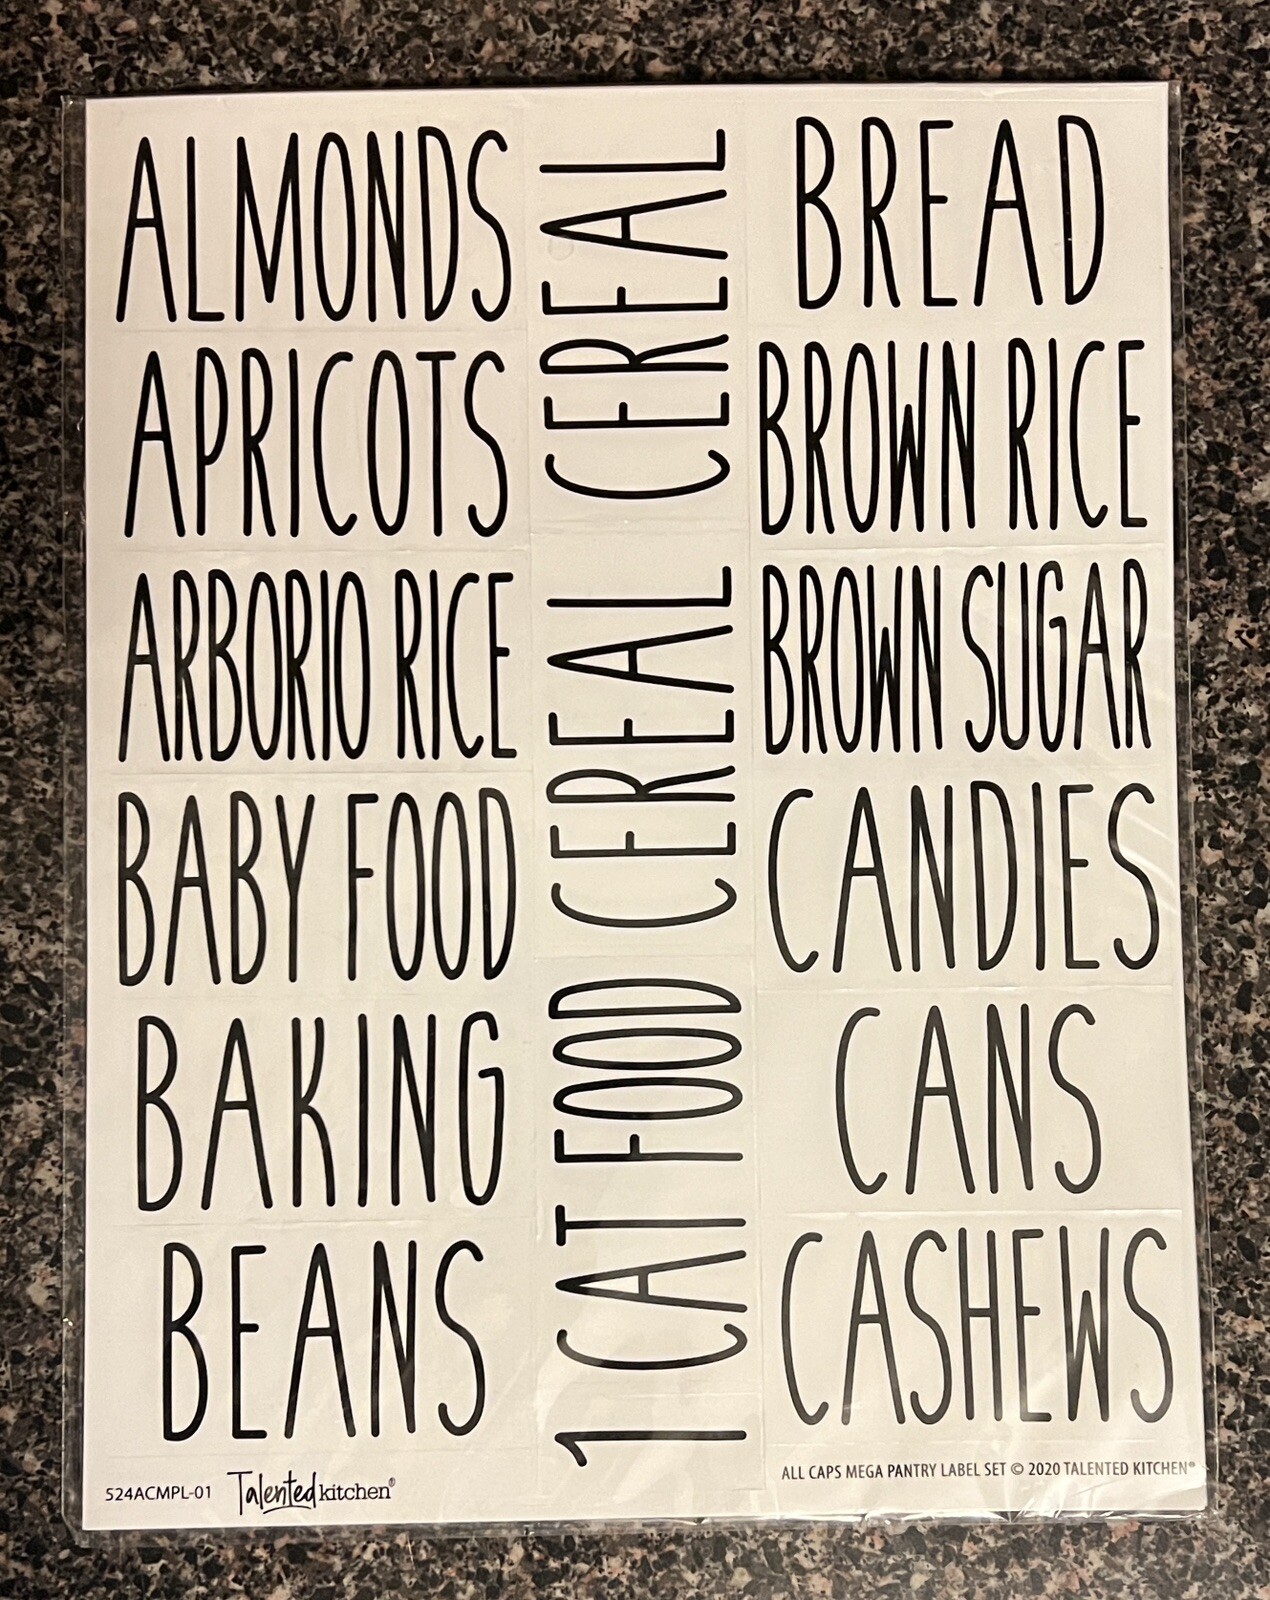 ALMONDS
APRICOTS
ARBORIO RICE
BABY FOOD
BAKING
BEANS
CEREAL
CEREAL
CAT FOOD
1
BREAD
BROWN RICE
BROWN SUGAR
CANDIES
CANS
CASHEWS
524ACMPL-01 Talented kitchen®
ALL CAPS MEGA PANTRY LABEL SET © 2020 TALENTED KITCHEN®